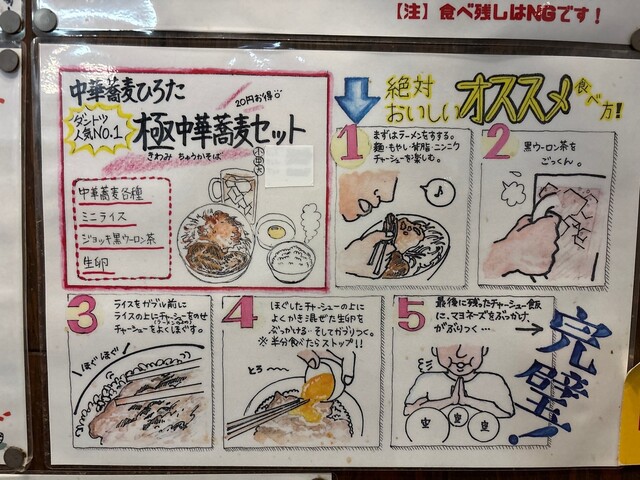 【注】食べ残しはNGです！
中華蕎麦ひろた
20円お得
ダントツ
人気NO.1
極中華蕎麦セット
きわみ ちゅうかそば
中華蕎麦各種
ミニライス
ジョッキ黒ウーロン茶
生卵
絶対
おいしい
オススメ
食べ方!
1
まずはラーメンを食する。
麺・もやし・背脂・ニンニク
チャーシューを楽しむ。
2
黒ウーロン茶を
ごっくん。
3
ライスをガブル前に
ライスの上にチャーシューをのせ
チャーシューをよくほぐす。
ほぐほぐ
4
ほぐしたチャーシューの上に
よくかき混ぜた生卵を
ぶっかける…そしてがぶりつく。
※半分食べたらストップ!!
とろ〜
5
最後に残ったチャーシュー飯
に、マヨネーズをぶっかけ、
がぶりつく…
完璧!
空 空 空